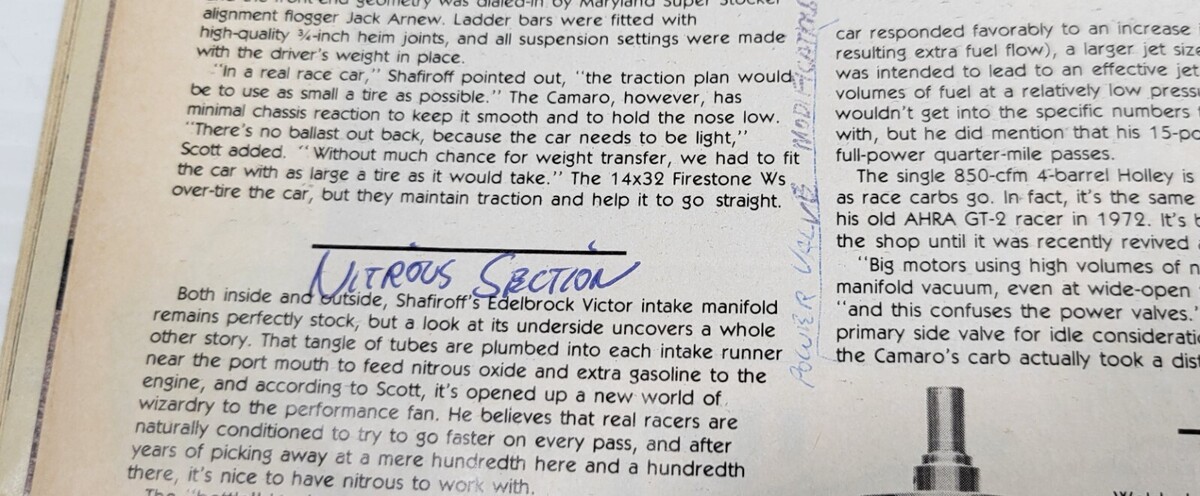 and the front end geometry was dialed-in by Maryland Super Stocker
alignment flogger Jack Arnew. Ladder bars were fitted with
high-quality ¾-inch heim joints, and all suspension settings were made
with the driver's weight in place.
"In a real race car," Shafiroff pointed out, "the traction plan would
be to use as small a tire as possible." The Camaro, however, has
minimal chassis reaction to keep it smooth and to hold the nose low.
"There's no ballast out back, because the car needs to be light,"
Scott added. "Without much chance for weight transfer, we had to fit
the car with as large a tire as it would take." The 14x32 Firestone Ws
over-tire the car, but they maintain traction and help it to go straight.
NITROUS SECTION
Both inside and outside, Shafiroff's Edelbrock Victor intake manifold
remains perfectly stock, but a look at its underside uncovers a whole
other story. That tangle of tubes are plumbed into each intake runner
near the port mouth to feed nitrous oxide and extra gasoline to the
engine, and according to Scott, it's opened up a new world of
wizardry to the performance fan. He believes that real racers are
naturally conditioned to try to go faster on every pass, and after
years of picking away at a mere hundredth here and a hundredth
there, it's nice to have nitrous to work with.
POWER VALVE MODIFICATIONS
car responded favorably to an increase
resulting extra fuel flow), a larger jet size
was intended to lead to an effective jet
volumes of fuel at a relatively low
wouldn't get into the specific numbers
with, but he did mention that his
full-power quarter-mile passes.
The single 850-cfm 4-barrel Holley is
as race carbs go. In fact, it's the same
his old AHRA GT-2 racer in 1972. It's
the shop until it was recently revived
"Big motors using high volumes of
manifold vacuum, even at wide-open
"and this confuses the power valves.
primary side valve for idle
the Camaro's carb actually took a